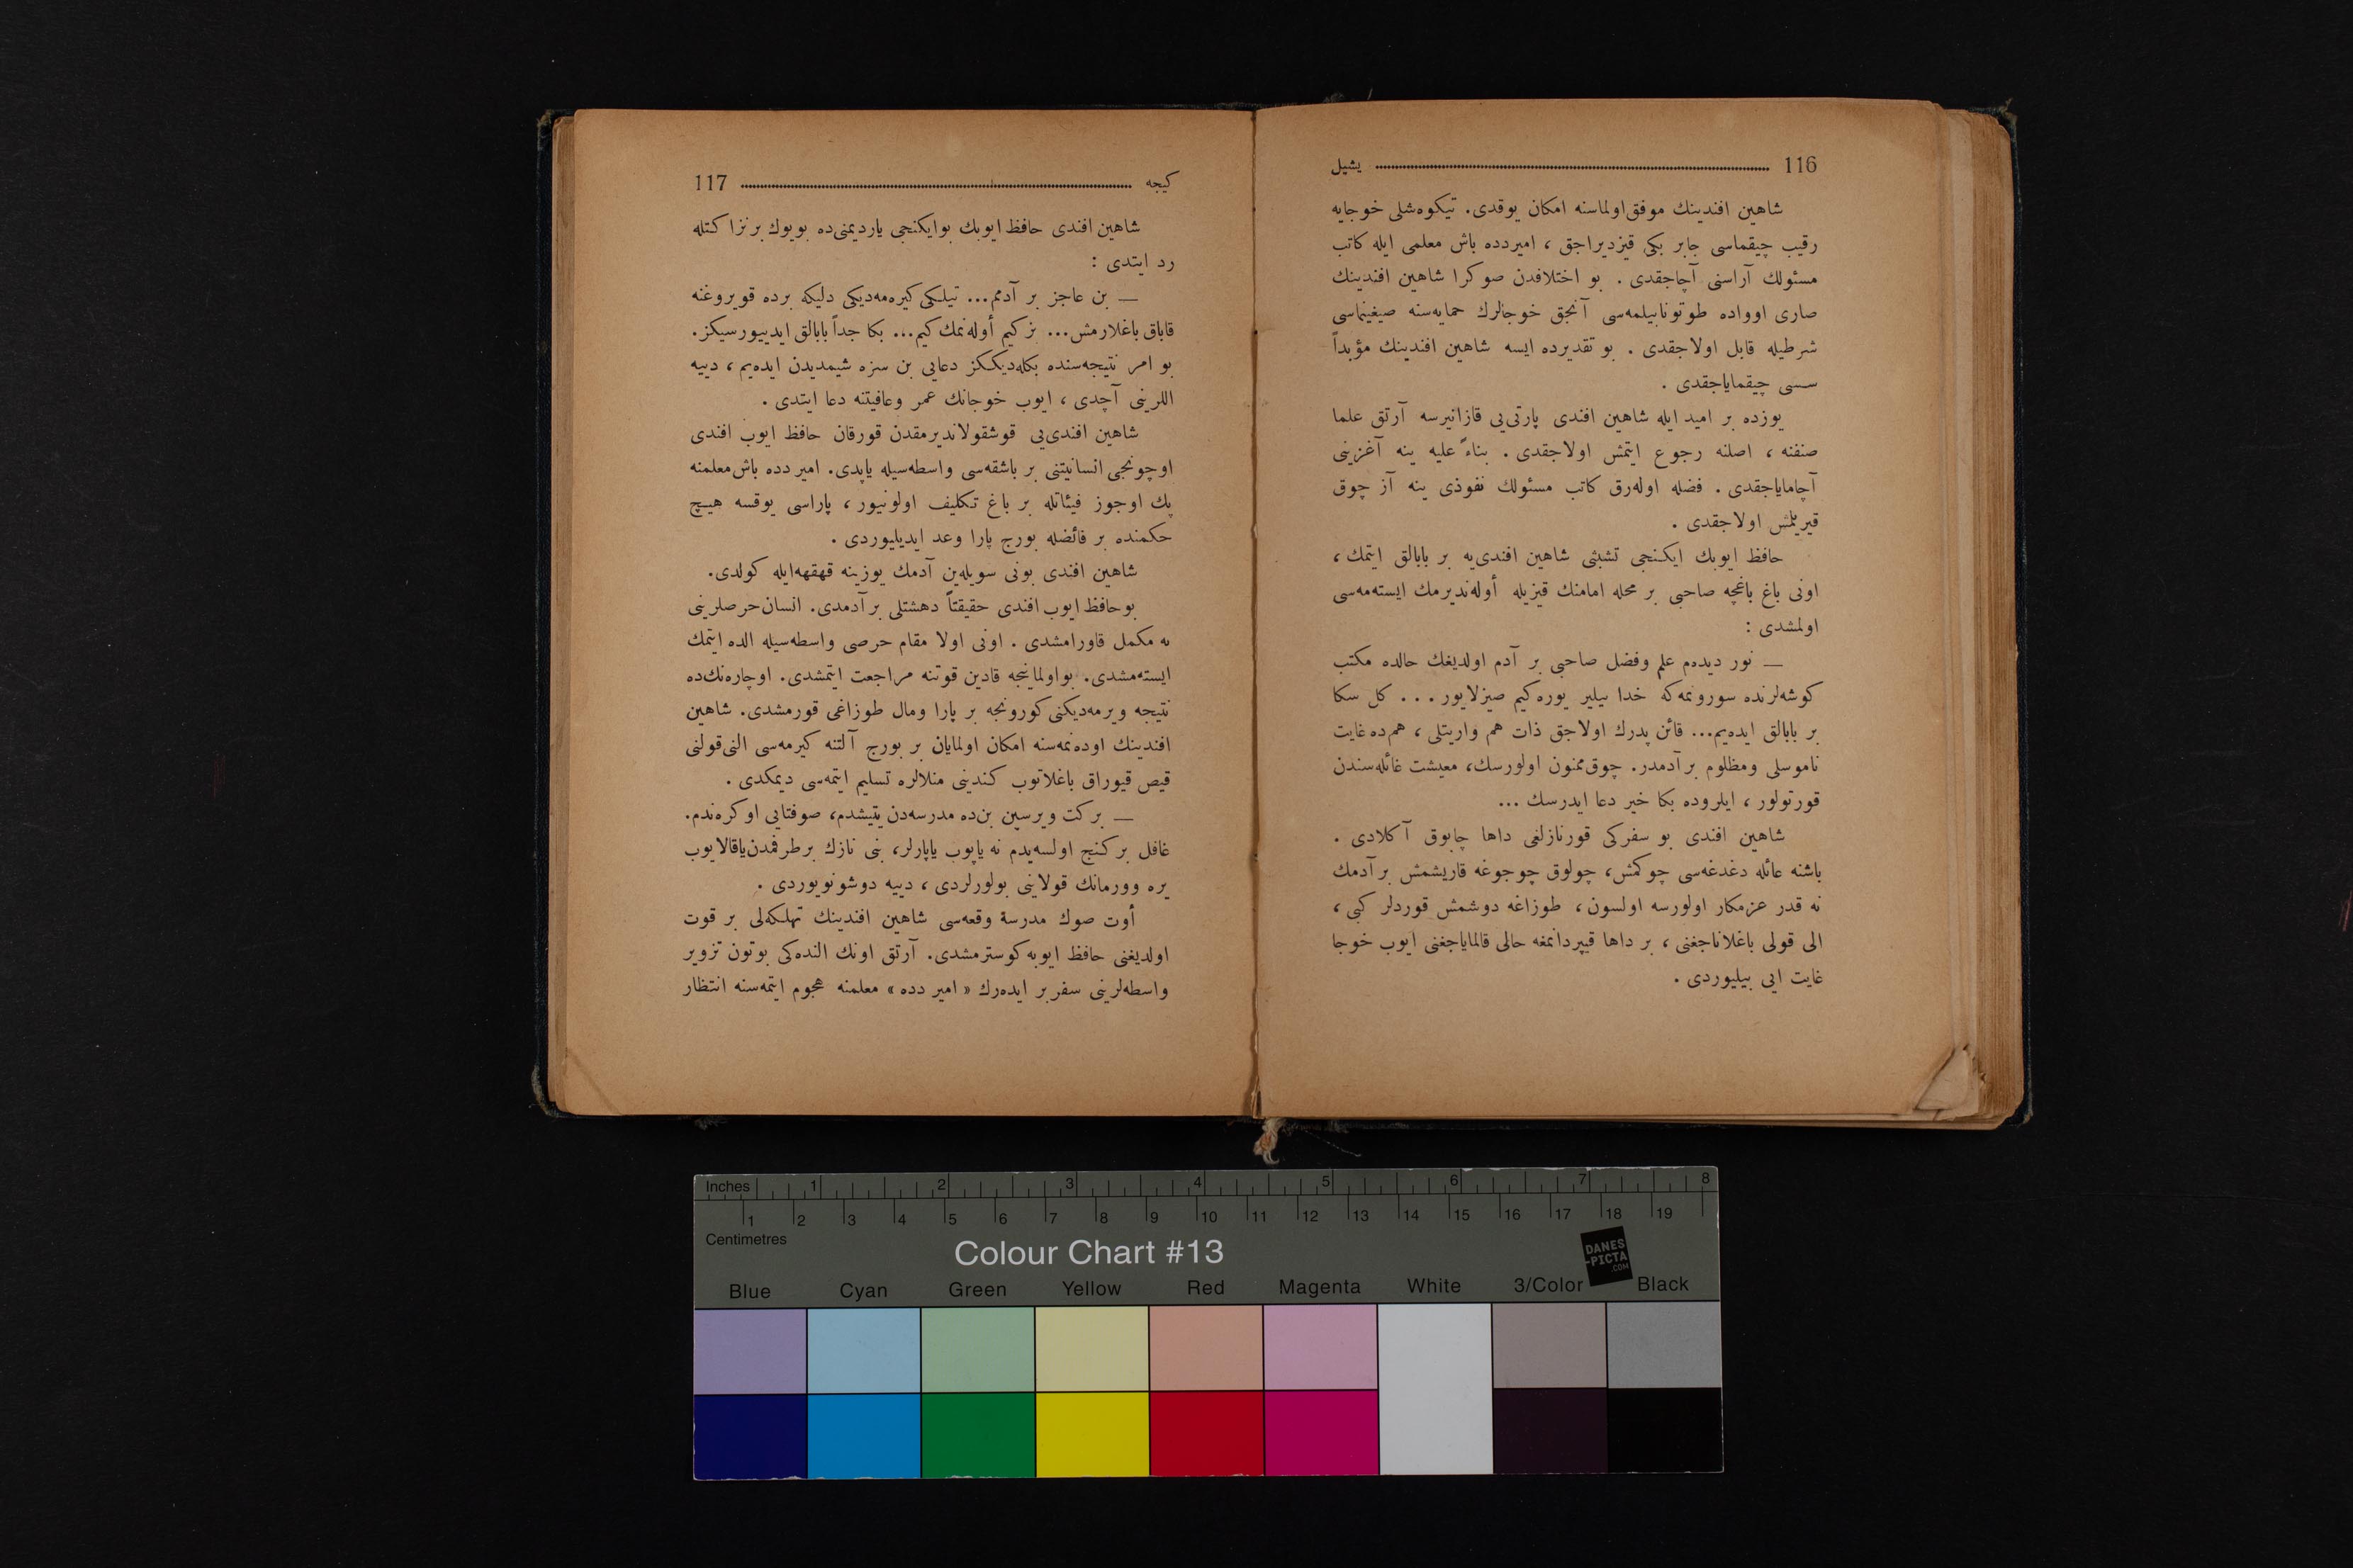 116 یشیل
شاهین افندینك موفق اولماسنه امكان یوقدی. تیكوه‌شلی خوجایه
رقیب چیقماسی جابر بكی قیزدیراجق ، امیردده باش معلمی ایله كاتب
مسئولك آراسنی آچاجقدی . بو اختلافدن صوكرا شاهین افندینك
صاری اوواده طوتونابیلمه‌سی آنجق خوجالرك حمایه‌سنه صیغینماسی
شرطیله قابل اولاجقدی . بو تقدیرده ایسه شاهین افندینك مؤبداً
سسی چیقمایاجقدی .
یوزده بر امید ایله شاهین افندی پارتی‌یی قازانیرسه آرتق علما
صنفنه ، اصلنه رجوع ایتمش اولاجقدی . بناءً علیه ینه آغزینی
آچامایاجقدی . فضله اوله‌رق كاتب مسئولك نفوذی ینه آز چوق
قیریلمش اولاجقدی .
حافظ ایوبك ایكنجی تشبثی شاهین افندی‌یه بر بابالق ایتمك ،
اونی باغ باغچه صاحبی بر محله امامنك قیزیله أوله‌ندیرمك ایسته‌مه‌سی
اولمشدی :
— نور دیده‌م علم وفضل صاحبی بر آدم اولدیغك حالده مكتب
كوشه‌لرنده سورونمه‌كه خدا بیلیر یوره‌كیم صیزلایور . . . كل سكا
بر بابالق ایده‌یم... قائن پدرك اولاجق ذات هم واریتلی ، هم‌ده غایت
ناموسلی ومظلوم بر آدمدر. چوق ممنون اولورسك، معیشت غائله‌سندن
قورتولور ، ایلروده بكا خیر دعا ایدرسك ...
شاهین افندی بو سفركی قورنازلغی داها چابوق آكلادی .
باشنه عائله دغدغه‌سی چوكمش، چولوق چوجوغه قاریشمش بر آدمك
نه قدر عزمكار اولورسه اولسون ، طوزاغه دوشمش قوردلر كبی ،
الی قولی باغلاناجغنی ، بر داها قیپردانمغه حالی قالمایاجغنی ایوب خوجا
غایت ایی بیلیوردی .
كیجه 117
شاهین افندی حافظ ایوبك بوایكنجی یاردیمنی‌ده بویوك برنزاكتله
رد ایتدی :
— بن عاجز بر آدمم... تیلكی كیره‌مه‌دیكی دلیكه برده قویروغنه
قاباق باغلارمش... بز كیم أوله‌نمك كیم... بكا جداً بابالق ایدییورسیكز.
بو امر نتیجه‌سنده بكله‌دیككز دعایی بن سزه شیمدیدن ایده‌یم ، دییه
اللرینی آچدی ، ایوب خوجانك عمر وعافیتنه دعا ایتدی .
شاهین افندی‌یی قوشقولاندیرمقدن قورقان حافظ ایوب افندی
اوچونجی انسانیتنی بر باشقه‌سی واسطه‌سیله یاپدی. امیر دده باش معلمنه
پك اوجوز فیئاتله بر باغ تكلیف اولونیور ، پاراسی یوقسه هیچ
حكمنده بر فائضله بورج پارا وعد ایدیلیوردی .
شاهین افندی بونی سویله‌ین آدمك یوزینه قهقهه‌ایله كولدی.
بوحافظ ایوب افندی حقیقتاً دهشتلی بر آدمدی. انسان حرصلرینی
نه مكمل قاورامشدی . اونی اولا مقام حرصی واسطه‌سیله الده ایتمك
ایسته‌مشدی. بواولماینجه قادین قوتنه مراجعت ایتمشدی. اوچاره‌نك‌ده
نتیجه ویرمه‌دیكنی كورونجه بر پارا ومال طوزاغی قورمشدی. شاهین
افندینك اوده‌نمه‌سنه امكان اولمایان بر بورج آلتنه كیرمه‌سی النی قولنی
قیص قیوراق باغلاتوب كندینی منلالره تسلیم ایتمه‌سی دیمكدی .
— بركت ویرسین بن‌ده مدرسه‌دن یتیشدم، صوفتایی اوكره‌ندم.
غافل بر كنج اولسه‌یدم نه یاپوب یاپارلر، بنی نازك بر طرفمدن یاقالایوب
یره وورمانك قولاینی بولورلردی ، دییه دوشونویوردی .
أوت صوك مدرسهٔ وقعه‌سی شاهین افندینك تهلكه‌لی بر قوت
اولدیغنی حافظ ایوبه كوسترمشدی. آرتق اونك النده‌كی بوتون تزویر
واسطه‌لرینی سفربر ایده‌رك « امیر دده » معلمنه هجوم ایتمه‌سنه انتظار
Inches 1 2 3 4 5 6 7 8
1 2 3 4 5 6 7 8 9 10 11 12 13 14 15 16 17 18 19
Centimetres
Colour Chart #13
DANES
-PICTA
.COM
Blue Cyan Green Yellow Red Magenta White 3/Color Black